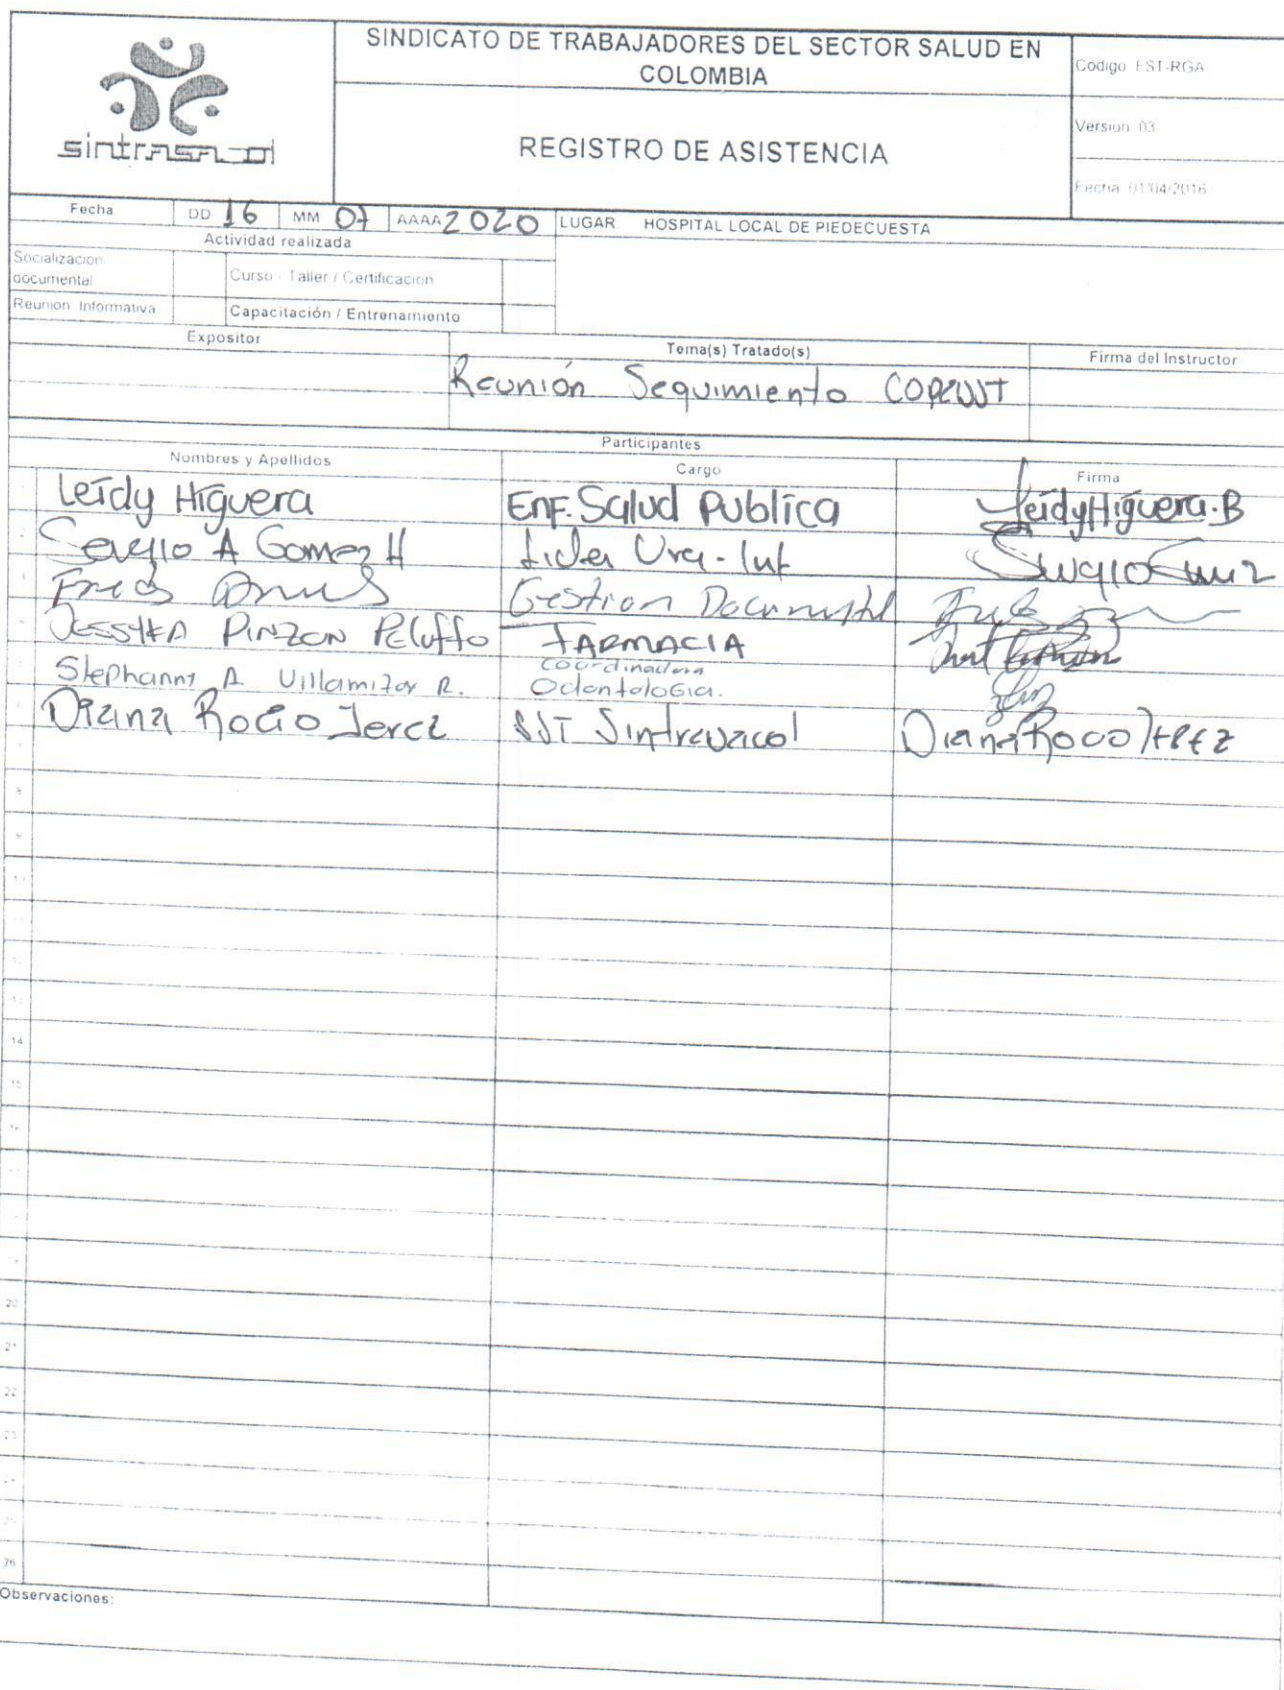 sintrasacol
SINDICATO DE TRABAJADORES DEL SECTOR SALUD EN
COLOMBIA
REGISTRO DE ASISTENCIA
Codigo FST-RGA
Version 03
Fecha 01/04/2016
Fecha DD 16 MM 07 AAAA 2020 LUGAR HOSPITAL LOCAL DE PIEDECUESTA
Actividad realizada
Socializacion documental
Curso - Taller / Certificacion
Reunion Informativa
Capacitación / Entrenamiento
Expositor Tema(s) Tratado(s) Firma del Instructor
Reunión Seguimiento
Participantes
Nombres y Apellidos Cargo Firma
Leidy Higuera Enf. Salud Publica Leidy Higuera.B
Sergio A Gomez H Lider
Gestion Documental
Jessyka PINZON Peluffo FARMACIA
Stephanny A Villamizar R. Coordinadora Odontologia.
Diana Rocio Jerez SST Diana Rocio Jerez
8
9
14
15
20
21
22
23
26
Observaciones: